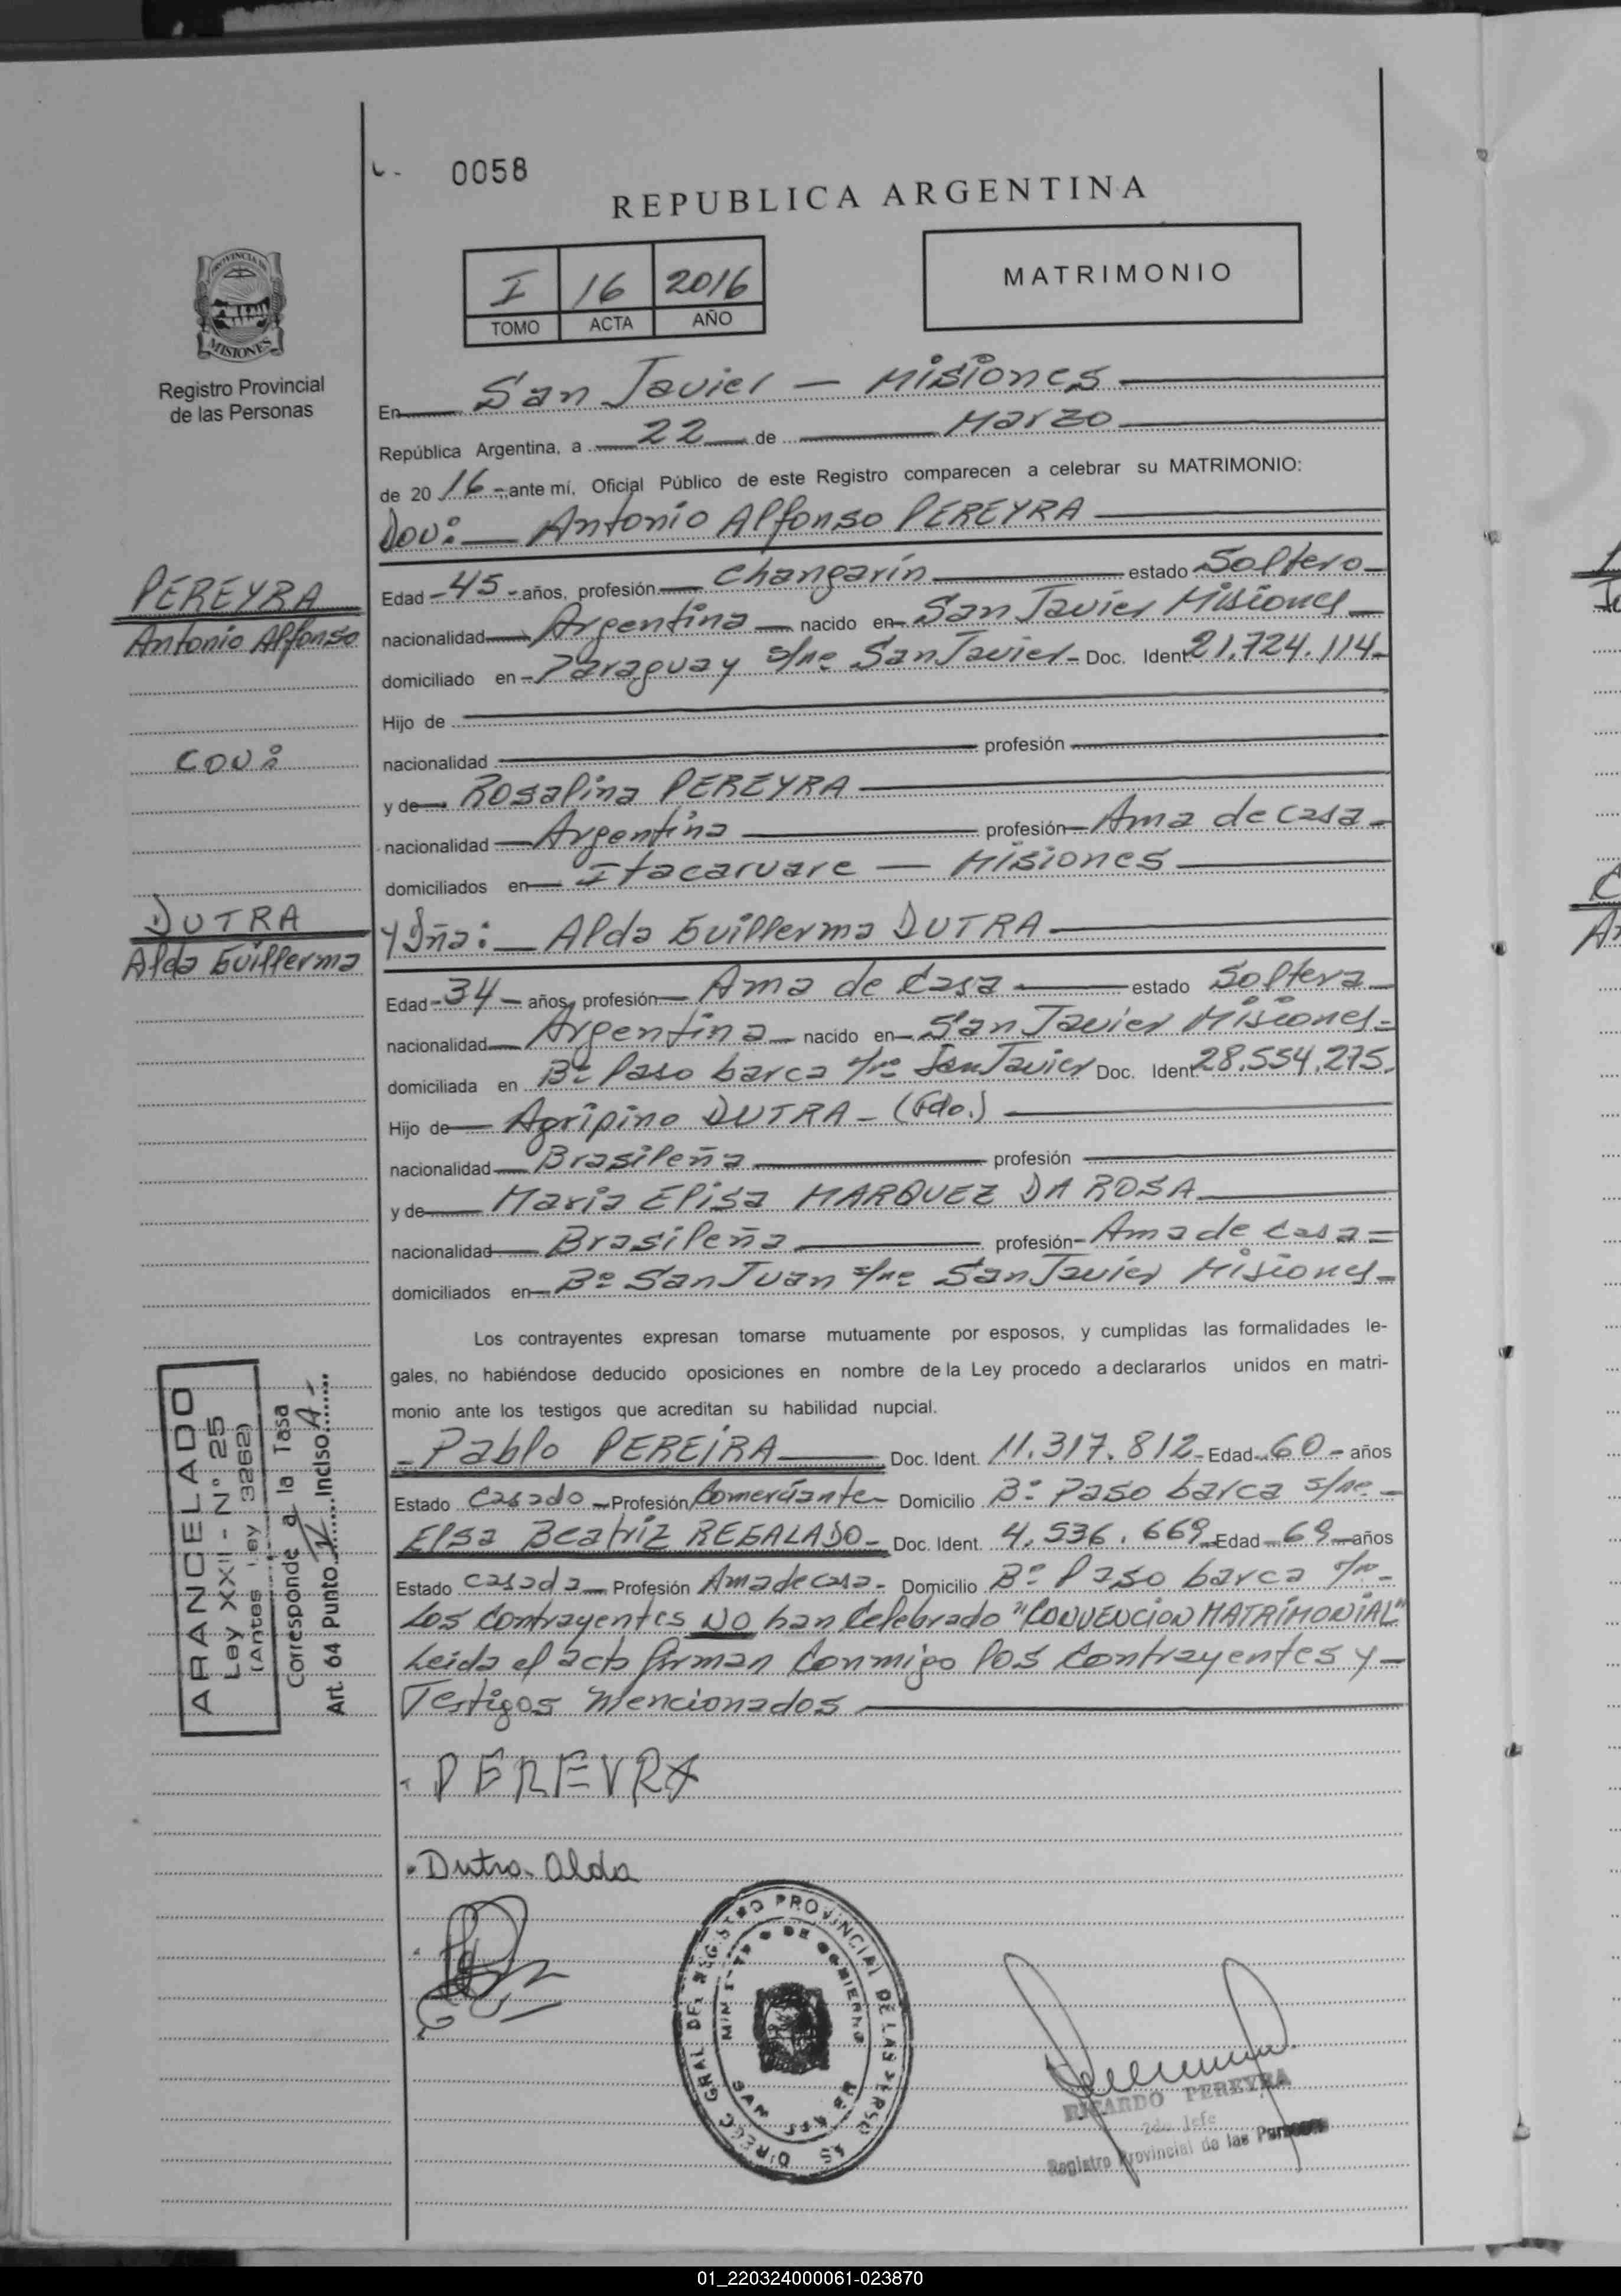 0058
REPUBLICA ARGENTINA
PROVINCIA DE
MISIONES
Registro Provincial
de las Personas
I 16 2016
TOMO ACTA AÑO
MATRIMONIO
En San Javier - Misiones
República Argentina, a 22 de Marzo
de 20 16 - ante mí, Oficial Público de este Registro comparecen a celebrar su MATRIMONIO:
Don: Antonio Alfonso PEREYRA
PEREYRA
Antonio Alfonso
Edad - 45 - años, profesión Changarín estado Soltero
nacionalidad Argentina nacido en San Javier Misiones
domiciliado en Paraguay s/nº San Javier - Doc. Ident. 21.724.114
Hijo de
nacionalidad profesión
CON:
y de Rosalina PEREYRA
nacionalidad Argentina profesión Ama de casa
domiciliados en Itacaruare - Misiones
DUTRA
Alda Guillerma
y Dña: Alda Guillerma DUTRA
Edad - 34 - años, profesión Ama de Casa estado Soltera
nacionalidad Argentina nacido en San Javier Misiones
domiciliada en Bº Paso barca s/nº San Javier Doc. Ident. 28.554.275.
Hijo de Agripino DUTRA - (Fdo.)
nacionalidad Brasileña profesión
y de Maria Elisa MARQUEZ DA ROSA
nacionalidad Brasileña profesión - Ama de Casa =
domiciliados en Bº San Juan s/nº San Javier Misiones
Los contrayentes expresan tomarse mutuamente por esposos, y cumplidas las formalidades le-
gales, no habiéndose deducido oposiciones en nombre de la Ley procedo a declararlos unidos en matri-
monio ante los testigos que acreditan su habilidad nupcial.
- Pablo PEREIRA Doc. Ident. 11.317.812 - Edad 60 - años
Estado Casado - Profesión Comerciante Domicilio Bº Paso barca s/nº -
Elsa Beatriz REGALADO - Doc. Ident. 4.536.669 Edad 69 años
Estado casada Profesión Ama de casa - Domicilio Bº Paso barca s/nº -
Los Contrayentes NO han Celebrado "CONVENCION MATRIMONIAL"
Leida el acta firman Conmigo los Contrayentes y -
Testigos Mencionados
ARANCELADO
Ley XXII - Nº 25
(Antes Ley 3262)
Corresponde a la Tasa
Art. 64 Punto Inciso A
PEREYRA
Dutra Alda
DIRECC GRAL DEL REGISTRO PROVINCIAL DE LAS PERSO
RICARDO PEREYRA
2do. Jefe
Registro Provincial de las Personas
01_220324000061-023870